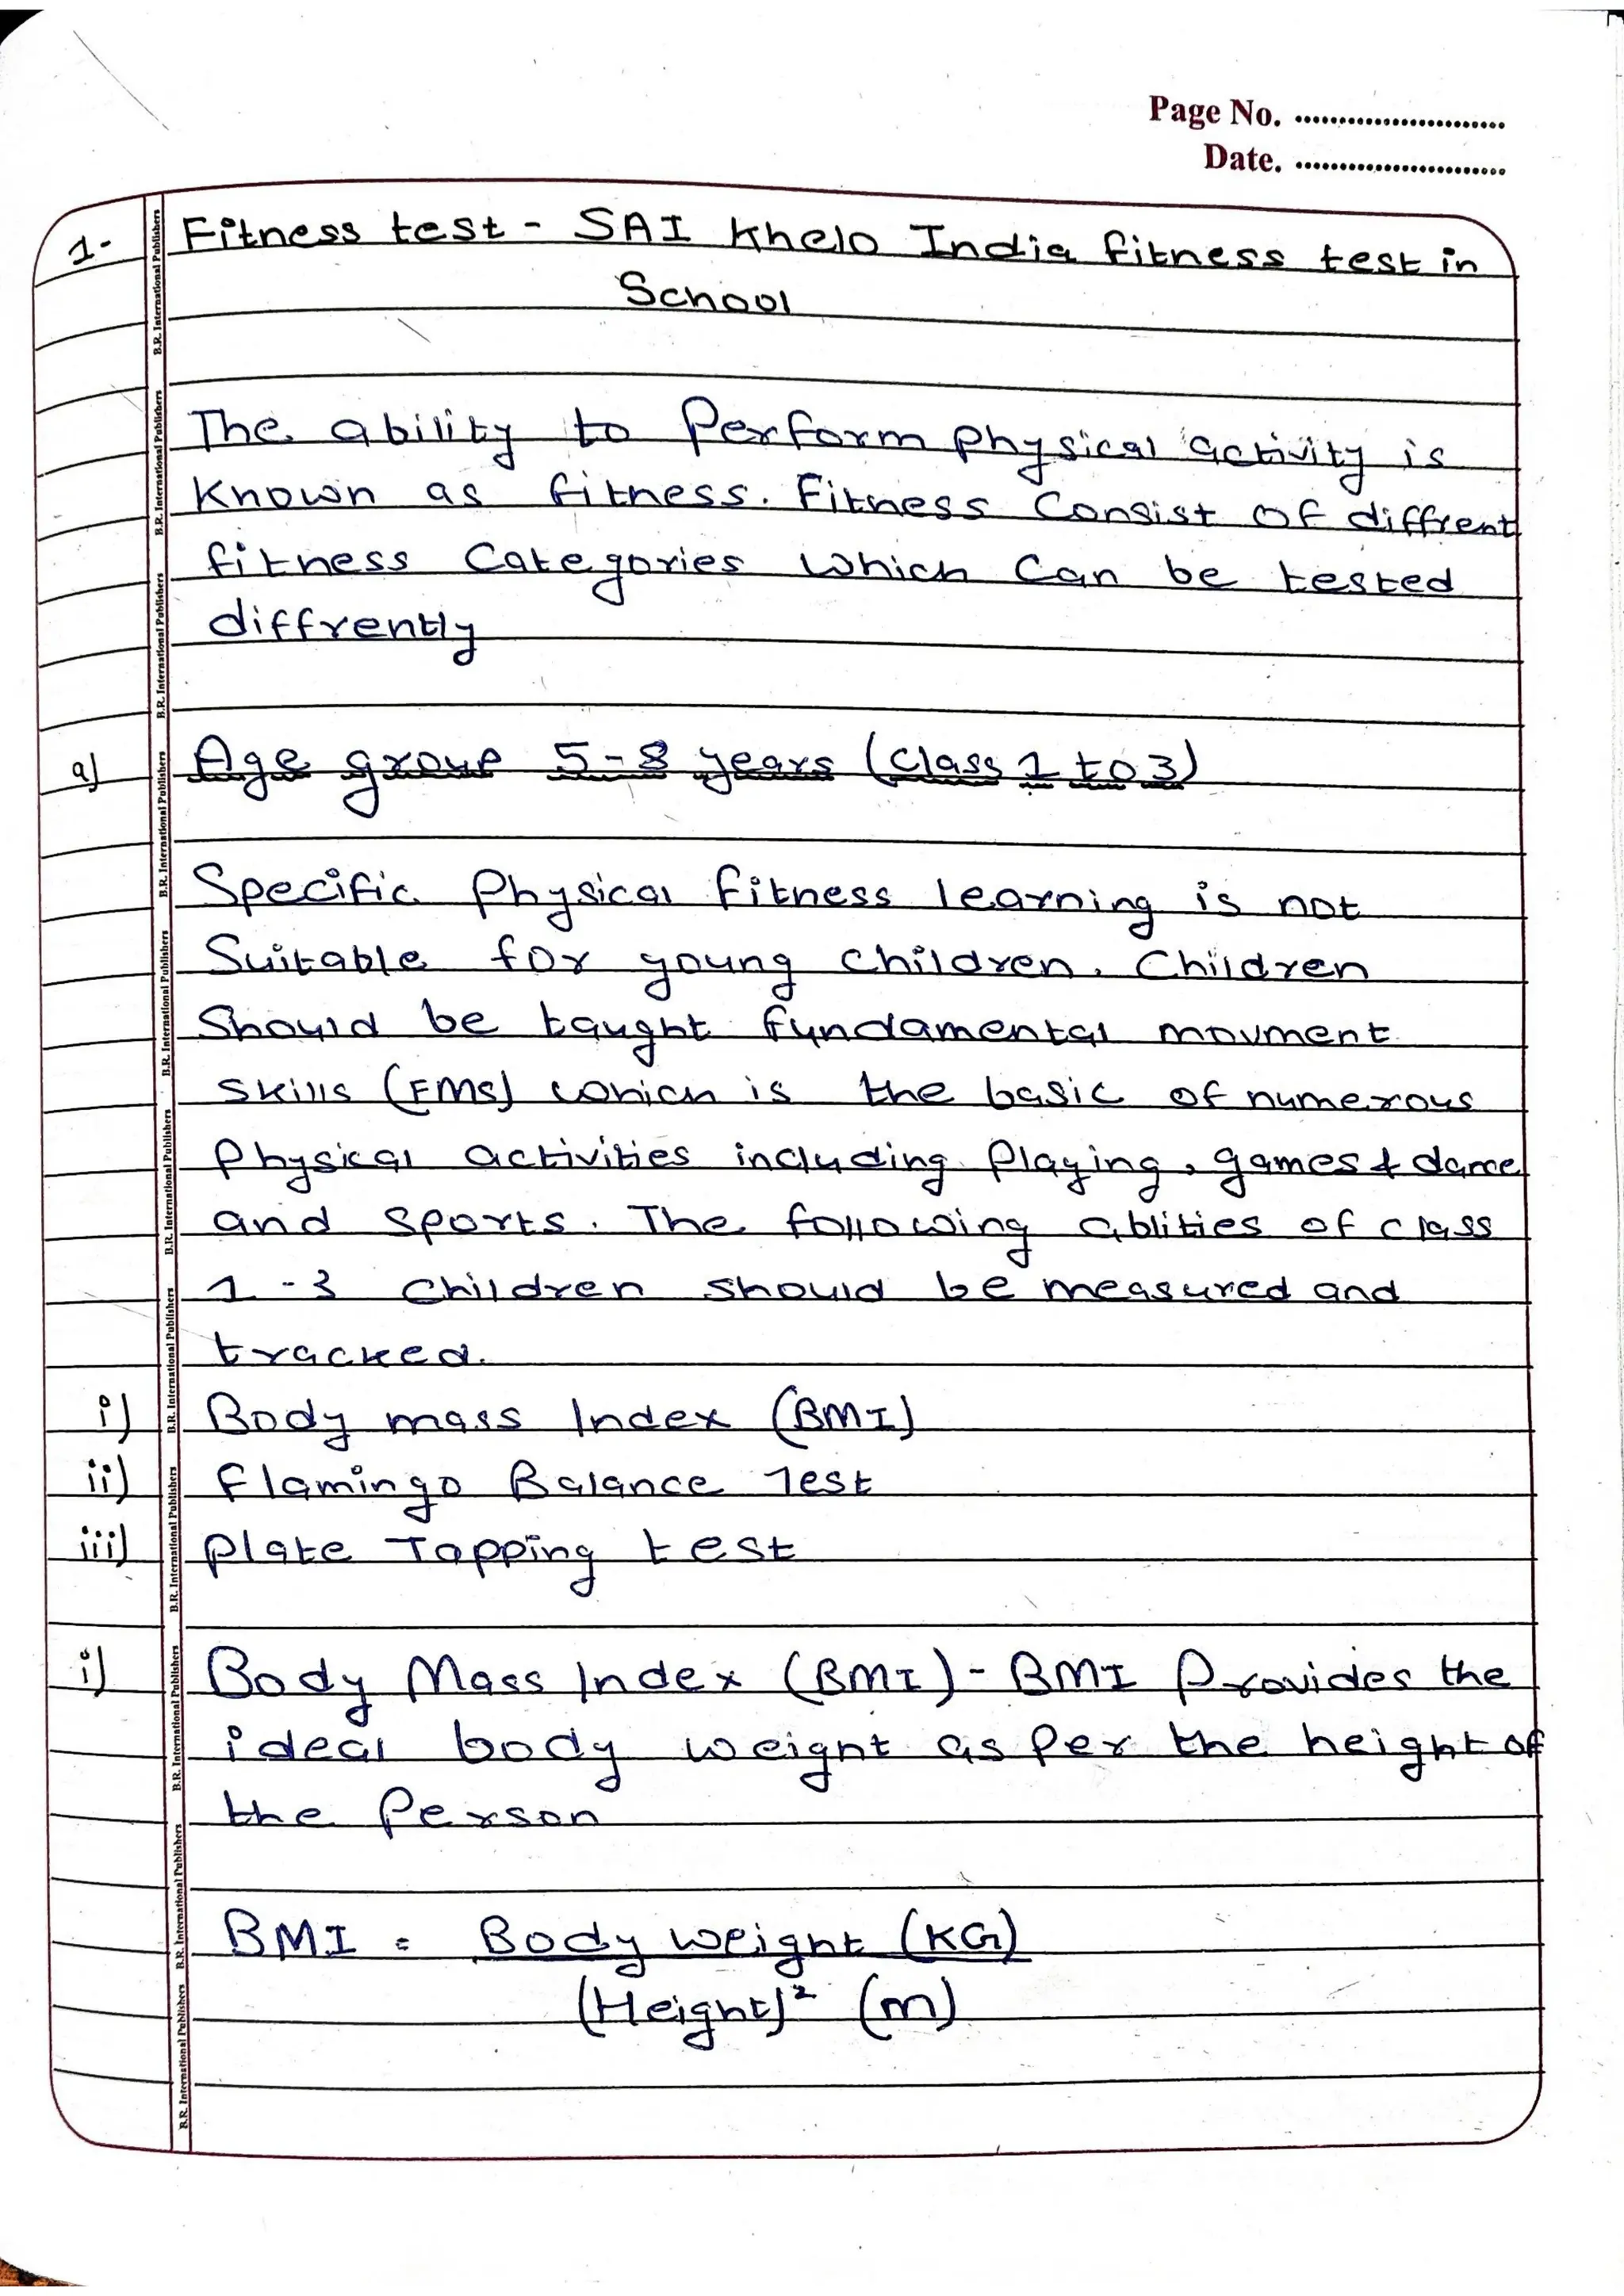 Page No. ........................
Date. ........................
1- Fitness test - SAI Khelo India fitness test in
School
The ability to Perform physical activity is
Known as fitness. Fitness Consist of diffrent
fitness Categories which Can be tested
diffrently
a) Age group 5-8 years (Class 1 to 3)
Specific Physical fitness learning is not
Suitable for young children. Children
Should be taught fundamental movment
Skills (FMS) which is the basic of numerous
Physical activities including Playing, games & dance
and sports. The following ablities of class
1-3 children should be measured and
tracked.
i) Body mass Index (BMI)
ii) flamingo Balance Test
iii) Plate Tapping test
i) Body Mass Index (BMI) - BMI Provides the
ideal body weight as Per the height of
the Person
BMI = Body weight (KG)
(Height)² (m)
B.R. International Publishers